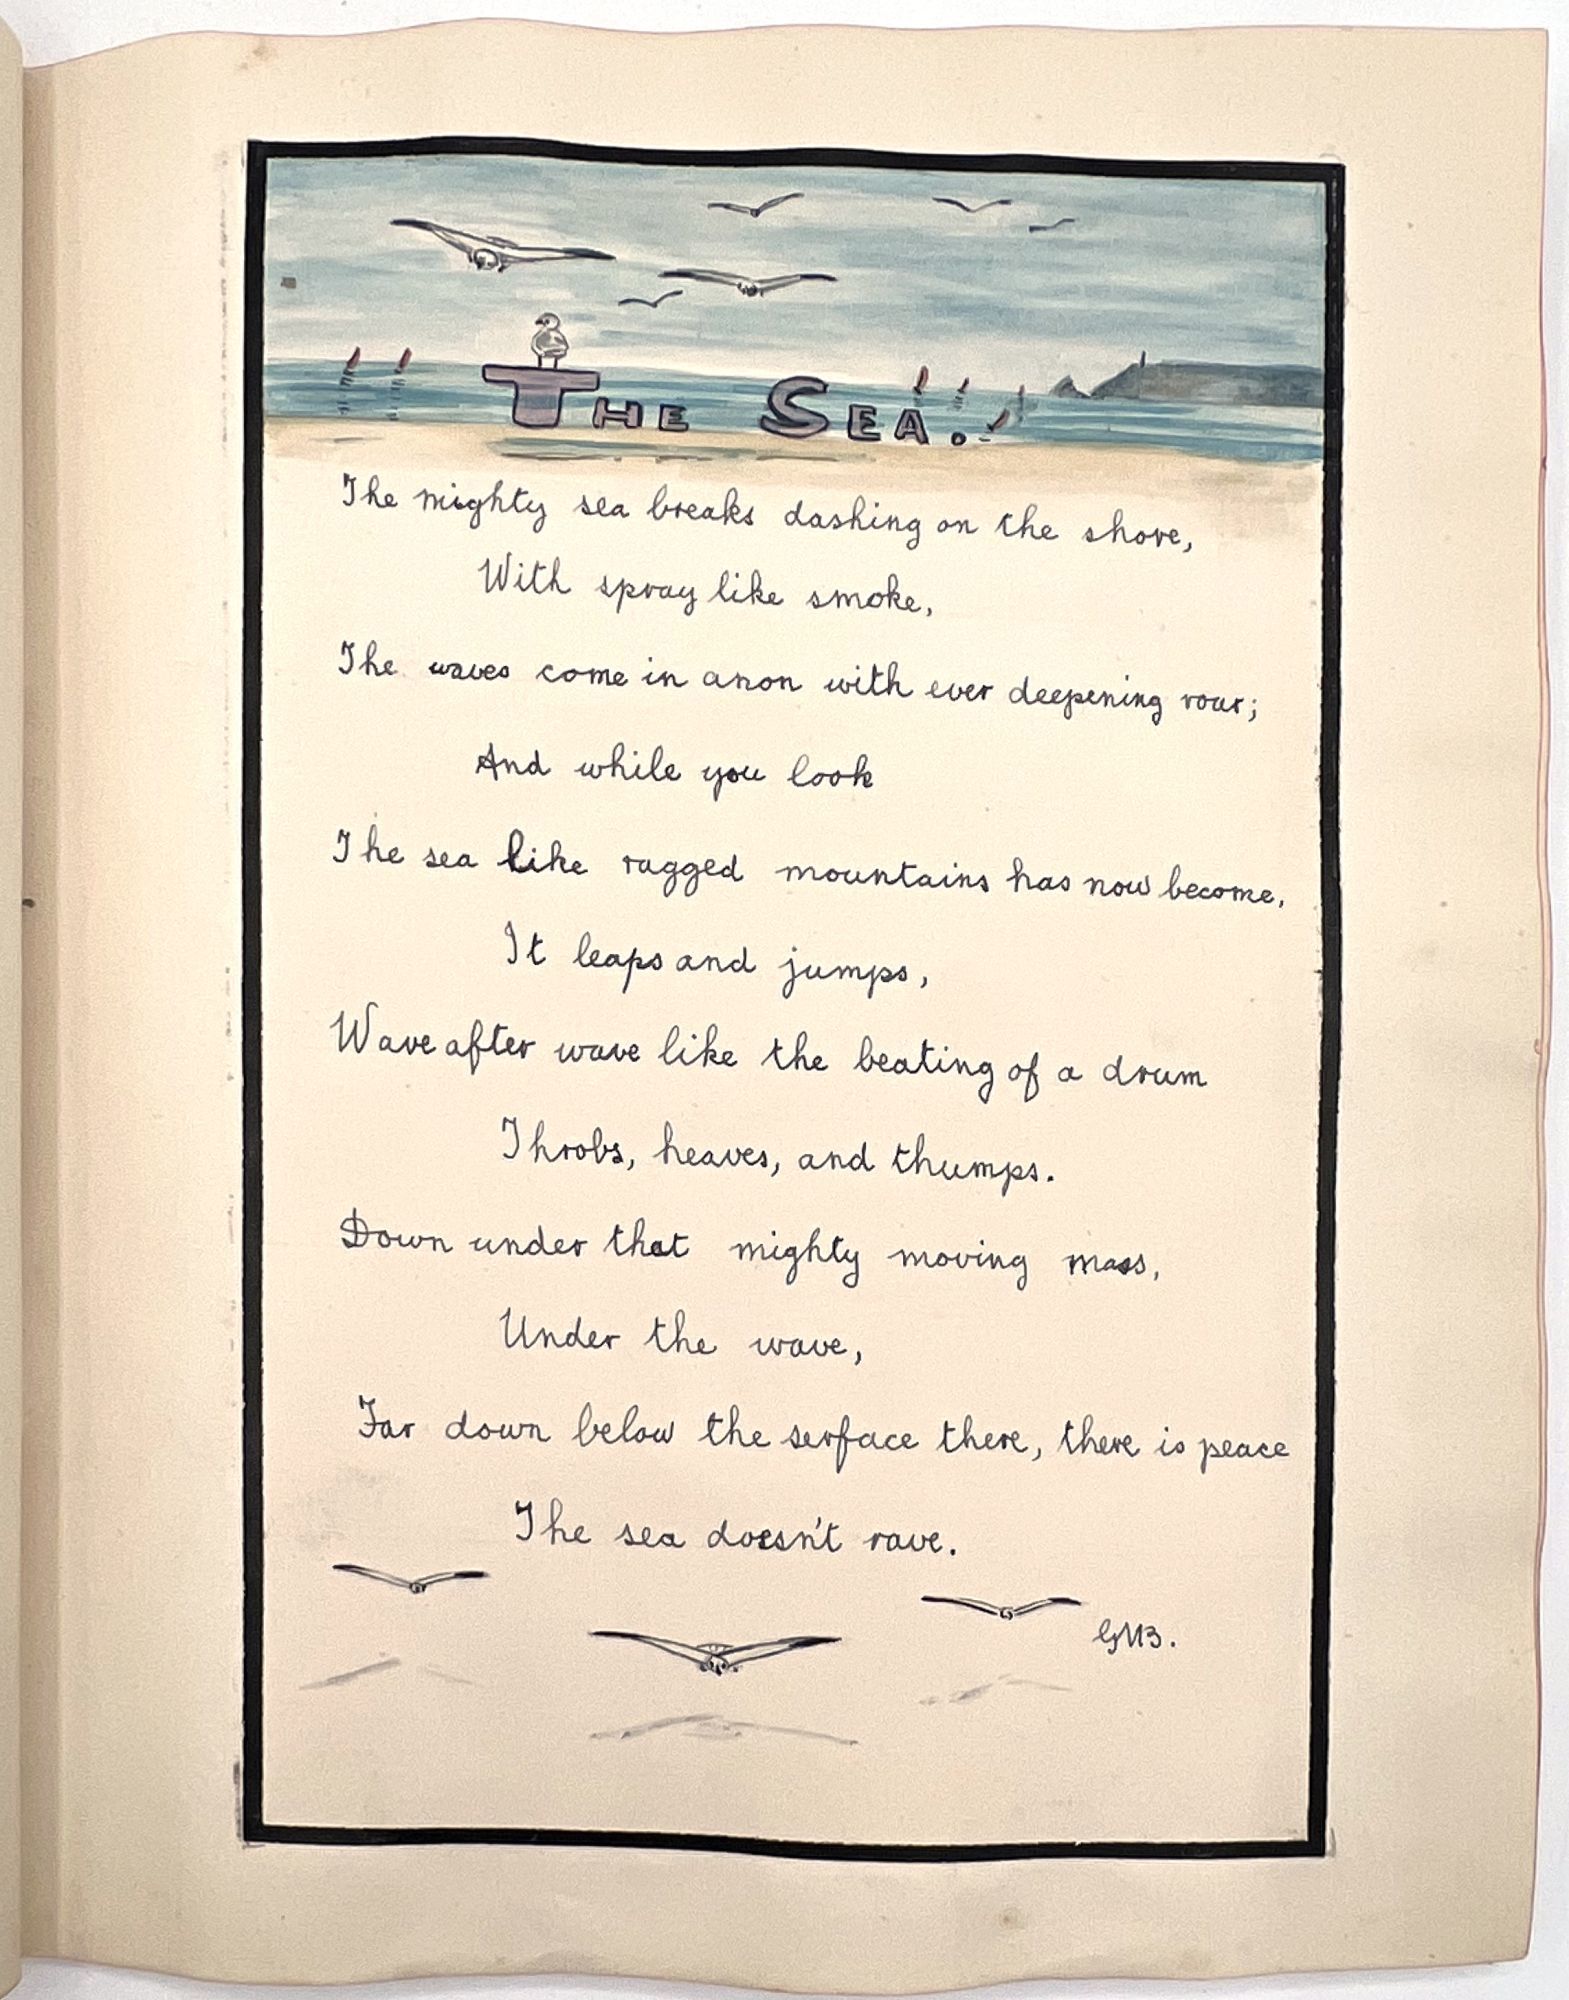 THE SEA.
The mighty sea breaks dashing on the shore,
With spray like smoke,
The waves come in anon with ever deepening roar;
And while you look
The sea like ragged mountains has now become,
It leaps and jumps,
Wave after wave like the beating of a drum
Throbs, heaves, and thumps.
Down under that mighty moving mass,
Under the wave,
Far down below the serface there, there is peace
The sea doesn't rave.
GMB.